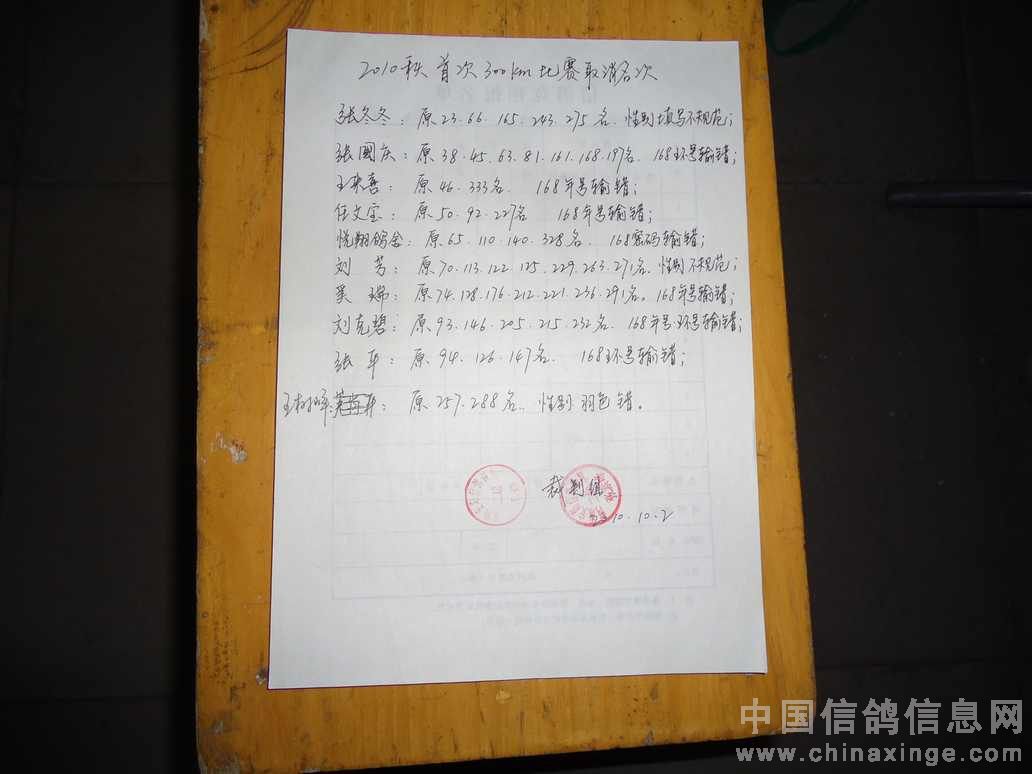 2010秋首次300km比赛取消名次
张冬冬: 原23.66.165.243.275名. 性别填写不规范;
张国庆: 原38.45.63.81.161.168.197名. 168环号输错;
王 喜: 原46.333名. 168年号输错;
任文宝: 原50.92.227名 168年号输错;
悦翔鸽舍: 原65.110.140.328名. 168密码输错;
刘 芳: 原70.113.122.125.229.263.271名. 性别不规范;
吴 瑞: 原74.128.176.212.221.236.291名. 168年号输错;
刘克碧: 原93.146.205.215.232名. 168年号.环号输错;
张 军: 原94.126.147名. 168环号输错;
王树峰: 原257.288名. 性别羽色错.
裁判组
10.10.2
中国信鸽信息网
www.chinaxinge.com